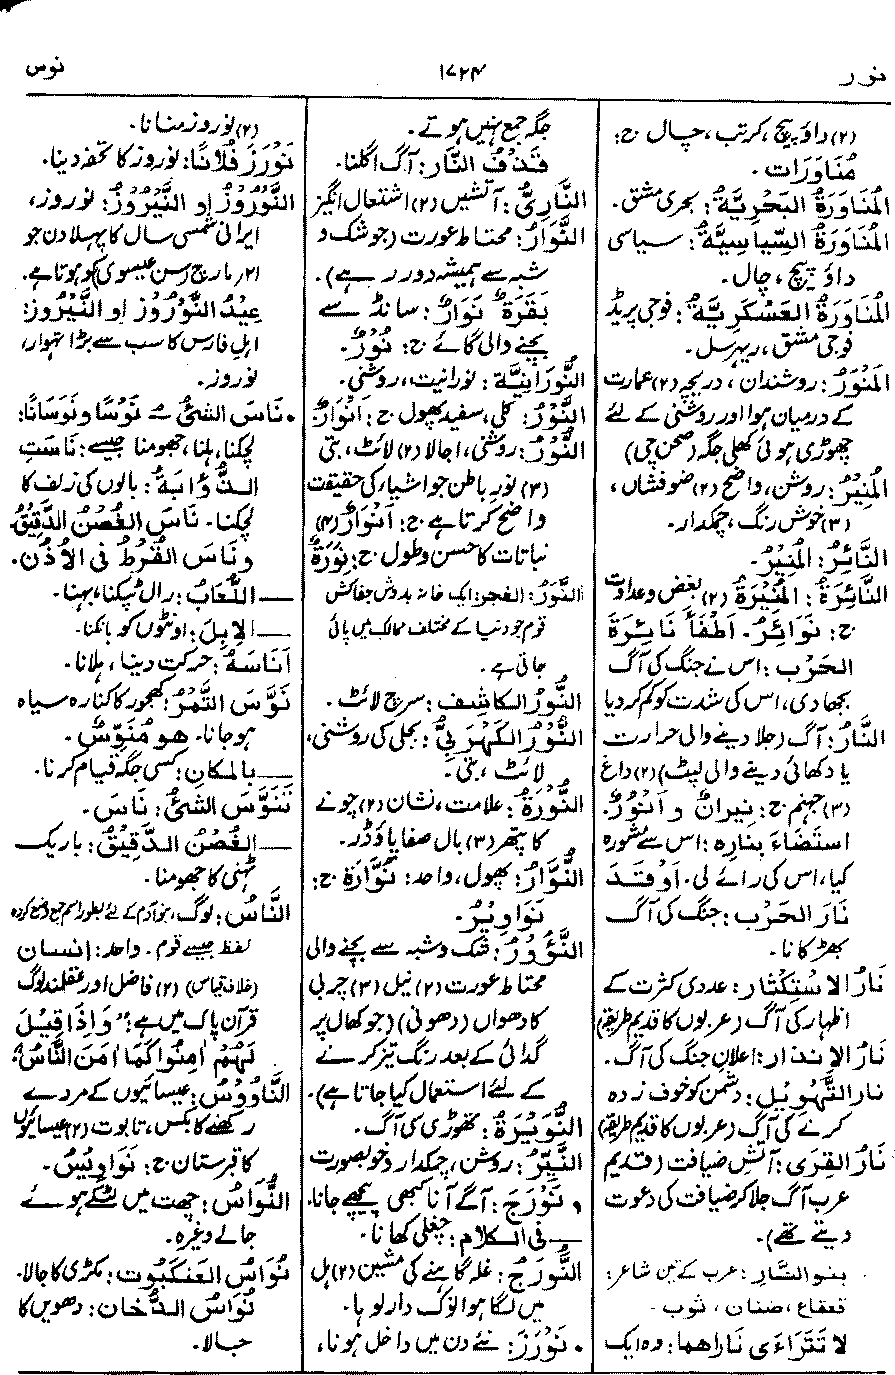 نور
۱۷۲۴
نوس
(۲) داؤ پیچ، کرتب، چال ج:
مُنَاوَرَات.
المُنَاوَرَةُ البَحْرِیَّةُ: بحری مشق.
المُنَاوَرَةُ السِّیَاسِیَّةُ: سیاسی
داؤ پیچ، چال.
المُنَاوَرَةُ العَسْکَرِیَّةُ: فوجی پریڈ
فوجی مشق، ریہرسل.
المَنْوَرُ: روشندان، دریچہ (۲) عمارت
کے درمیان ہوا اور روشنی کے لئے
چھوڑی ہوئی کھلی جگہ (صحن چی)
المُنِیْرُ: روشن، واضح (۲) ضوفشاں،
(۳) خوش رنگ، چمکدار.
النَّائِرُ: المُنِیْرُ.
النَّائِرَةُ: المُنِیْرَةُ (۲) بغض و عداوت
ج: نَوَائِرُ. اَطْفَأَ نَائِرَةَ
الحَرْبِ: اس نے جنگ کی آگ
بجھا دی، اس کی شدت کو کم کر دیا
النَّارُ: آگ (جلا دینے والی حرارت
یا دکھائی دینے والی لپٹ) (۲) داغ
(۳) جہنم ج: نِیرانٌ و اَنْوُرٌ.
اسْتَضَاءَ بِنَارِهِ: اس سے مشورہ
کیا، اس کی رائے لی. اَوْقَدَ
نَارَ الحَرْبِ: جنگ کی آگ
بھڑکانا.
نَارُ الاسْتِکْثَارِ: عددی کثرت کے
اظہار کی آگ (عربوں کا قدیم طریقہ)
نَارُ الاِنذارِ: اعلانِ جنگ کی آگ.
نَارُ التَّهْوِیْلِ: دشمن کو خوف زدہ
کرنے کی آگ (عربوں کا قدیم طریقہ)
نَارُ القِرَی: آتشِ ضیافت (قدیم
عرب آگ جلا کر ضیافت کی دعوت
دیتے تھے).
بنو النَّار: عرب کے تین شاعر:
قعقاع، ضنان، ثوب.
لا تَتَرَاءَی نَارَاهما: وہ ایک
جگہ جمع نہیں ہوتے.
قَذْفُ النَّارِ: آگ اگلنا.
النَّارِیُّ: آتشیں (۲) اشتعال انگیز
النَّوَارُ: محتاط عورت (جو شک و
شبہ سے ہمیشہ دور رہے).
بَقَرَةٌ نَوَارٌ: سانڈ سے
بچنے والی گائے ج: نُوْرٌ.
النُّوْرَانِیَّةُ: نورانیت، روشنی.
النَّوْرُ: کلی، سفید پھول ج: اَنْوَارٌ.
النُّوْرُ: روشنی، اجالا (۲) لائٹ، بتی
(۳) نورِ باطن جو اشیاء کی حقیقت
واضح کرتا ہے ج: اَنْوَارٌ (۴)
نباتات کا حسن و طول ج: نُوْرَةٌ
النَّوَرُ: الغجر: ایک خانہ بدوش جفاکش
قوم جو دنیا کے مختلف ممالک میں پائی
جاتی ہے.
النُّوْرُ الکاشِف: سرچ لائٹ.
النُّوْرُ الکَهْرَبِیُّ: بجلی کی روشنی،
لائٹ، بتی.
النُّوْرَةُ: علامت، نشان (۲) چونے
کا پتھر (۳) بال صفا پاؤڈر.
النُّوَّارُ: پھول، واحد: نُوَّارَة ج:
نَوَاوِیْرُ.
النَّؤُوْرُ: شک و شبہ سے بچنے والی
محتاط عورت (۲) نیل (۳) چربی
کا دھواں (دھونی) (جو کھال پر
گدائی کے بعد رنگ تیز کرنے
کے لئے استعمال کیا جاتا ہے).
النُّوَیْرَةُ: تھوڑی سی آگ.
النَّیِّرُ: روشن، چمکدار و خوبصورت
• نَوْرَجَ: آگے آنا کبھی پیچھے جانا.
— فی الکلام: چغلی کھانا.
النَّوْرَجُ: غلہ گاہنے کی مشین (۲) ہل
میں لگا ہوا نوک دار لوہا.
• نَوْرَزَ: نئے دن میں داخل ہونا،
(۲) نوروز منانا.
نَوْرَزَ فُلانًا: نوروز کا تحفہ دینا.
النَّوْرُوْزُ او النَّیْرُوْزُ: نوروز،
ایرانی شمسی سال کا پہلا دن جو
۲۱/ مارچ (سن عیسوی) کو ہوتا ہے.
عِیْدُ النَّوْرُوْزِ او النَّیْرُوْزِ:
اہلِ فارس کا سب سے بڑا تہوار،
نوروز.
• نَاسَ الشئُ ـُ نَوْسًا و نَوَسَانًا:
لچکنا، ہلنا، جھومنا جیسے: نَاسَتِ
الذُّؤَابَةُ: بالوں کی زلف کا
لچکنا. نَاسَ الغُصْنُ الدَّقِیْقُ
وَنَاسَ القُرْطُ فی الأُذُن.
— اللُّعَابُ: رال ٹپکنا، بہنا.
— الاِبِلَ: اونٹوں کو ہانکنا.
اَنَاسَهُ: حرکت دینا، ہلانا.
نَوَّسَ التَّمْرُ: کھجور کا کنارہ سیاہ
ہو جانا. هو مُنَوِّسٌ.
— بالمکانِ: کسی جگہ قیام کرنا.
تَنَوَّسَ الشئُ: نَاسَ.
— الغُصْنُ الدَّقِیْقُ: باریک
ٹہنی کا جھومنا.
النَّاسُ: لوگ، بنو آدم کے لئے بطور اسم جمع وضع کردہ
لفظ جیسے قوم. واحد: اِنسان
(خلافِ قیاس) (۲) فاضل اور عقلمند لوگ
قرآن پاک میں ہے: "وَاِذَا قِیْلَ
لَهُمْ اٰمِنُوا کَمَا اٰمَنَ النَّاسُ"
النَّاوُوْسُ: عیسائیوں کے مردے
رکھنے کا بکس، تابوت (۲) عیسائیوں
کا قبرستان ج: نَوَاوِیْسُ.
النُّوَاسُ: چھت میں لٹکے ہوئے
جالے وغیرہ.
نُوَاسُ العَنکَبُوت: مکڑی کا جالا.
نُوَاسُ الدُّخان: دھویں کا
جالا.